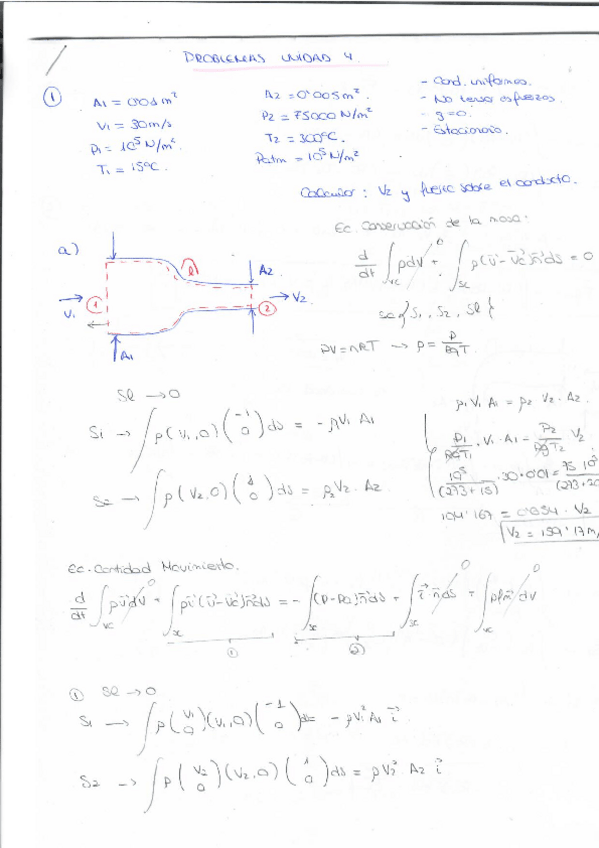 PROBLEMAS UNIDAD 4.
①
A1 = 0'01 m²
V1 = 30 m/s
P1 = 10⁵ N/m²
T1 = 15ºC.
A2 = 0'005 m².
P2 = 75000 N/m²
T2 = 300ºC.
Patm = 10⁵ N/m²
- Cond. uniformes.
- No tensor esfuerzos.
- g=0.
- Estacionario.
Calcular: V2 y fuerza sobre el conducto.
Ec. Conservación de la masa.
a)
d/dt ∫vc ρdV + ∫sc ρ(v - vc)n ds = 0
0
sc{S1, S2, Sl}
PV = nRT → ρ = P/RgT
V1
①
Sl
A2
② V2
A1
Sl → 0
S1 → ∫ρ(V1,0)(-1 0)ds = -ρV1 A1
S2 → ∫ρ(V2,0)(1 0)ds = ρ2V2·A2
ρ1 V1 A1 = ρ2 V2·A2.
P1/RgT1 · V1·A1 = P2/RgT2 V2
10⁵/(273+15) ·30·0'01 =
104'167 = · V2
V2 = 159'17 m/
Ec. Cantidad Movimiento.
d/dt ∫vc ρv dV + ∫sc ρv(v - vc)n ds = -∫sc (P-Pa)n ds + ∫sc τ·n ds + ∫vc ρfm dV
0 0 0
① ②
① Sl → 0
S1 → ∫ρ(V1 0)(V1,0)(-1 0)ds = -ρV1² A1 i
S2 → ∫ρ(V2 0)(V2,0)(1 0)ds = ρV2² A2 i